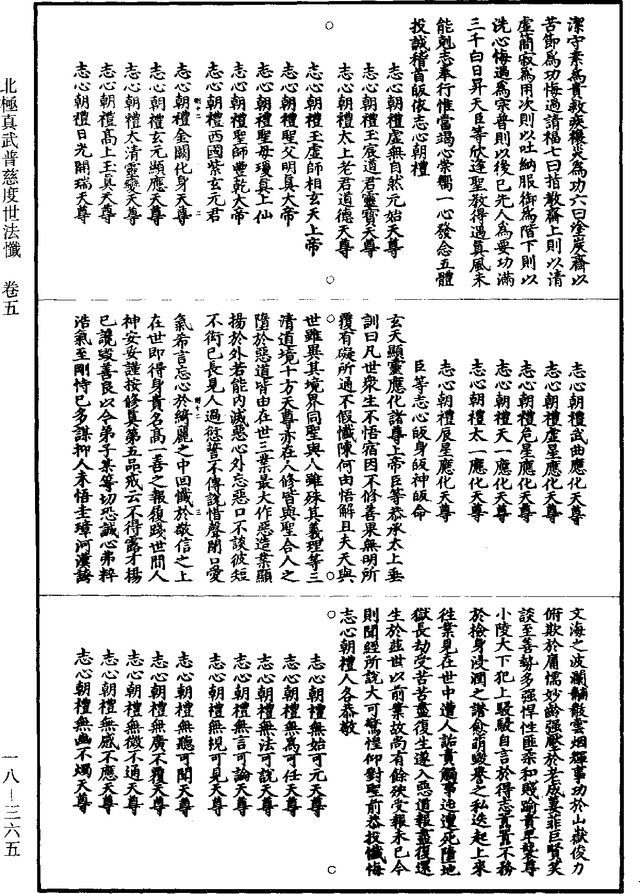 潔守素為貴救疾穰災為功六曰塗炭齋以
苦節為功悔過請福七曰指教齋上則以清
虛簡寂為用次則以吐納服御為階下則以
洗心悔過為宗普則以後己先人為要功滿
三千白日昇天臣等欣逢聖教得遇真風未
能剋志奉行惟當竭心崇嚮一心發念五體
投誠稽首皈依志心朝禮
志心朝禮虛無自然元始天尊
志心朝禮玉宸道君靈寶天尊
志心朝禮太上老君道德天尊
志心朝禮玉虛師相玄天上帝
志心朝禮聖父明真大帝
志心朝禮聖母瓊真上仙
志心朝禮聖師豐乾大帝
志心朝禮西國紫玄元君
志心朝禮金闕化身天尊
志心朝禮玄元顯應天尊
志心朝禮太清靈變天尊
志心朝禮高上玉真天尊
志心朝禮日光開瑞天尊
志心朝禮武曲應化天尊
志心朝禮虛星應化天尊
志心朝禮危星應化天尊
志心朝禮天一應化天尊
志心朝禮太一應化天尊
志心朝禮辰星應化天尊
臣等志心皈身皈神皈命
玄天顯靈應化諸尊上帝臣等恭承太上垂
訓曰凡世衆生不悟宿因不修善果無明所
覆有礙所過不假懺陳何由悟解且夫天與
世雖異其境界同聖與人雖殊其義理等三
清道境十方天尊亦在人修皆與聖合人之
墮於惡道皆由在世三業最大作惡造業顯
揚於外若能內滅惡心外忘惡口不談彼短
不衒己長見人過愆誓不傳說惜聲閉口愛
氣希言忘心於綺麗之中回懺於敬信之上
在世即得身貴名高一善之報復踐世間人
神安妥謹按修真第五品戒云不得露才揚
己讚毀善良以今弟子某等切恐誠心弗粹
浩氣至剛恃己多謀抑人未悟圭璋河漢誇
文海之波瀾黼黻雲烟輝事功於山嶽俊力
俯欺於孱懦妙齡強壓於老成萋菲巨賢笑
談至善勢多強悍性匪柔和賤踰貴卑襲尊
小陵大下犯上駸駸自言於得志貰貰不務
於檢身浸潤之譖愈萌毀譽之私迭起上來
往業見在世中遭人詬責觸事迍邅死墮地
獄長劫受苦苦盡復生遂入惡道報盡復還
生於茲世以前業故尚有餘殃受報未已今
則聞經所說大可驚惶仰對聖前恭投懺悔
志心朝禮人各恭敬
志心朝禮無始可元天尊
志心朝禮無為可任天尊
志心朝禮無法可說天尊
志心朝禮無言可論天尊
志心朝禮無視可見天尊
志心朝禮無聽可聞天尊
志心朝禮無廣不覆天尊
志心朝禮無微不通天尊
志心朝禮無感不應天尊
志心朝禮無幽不燭天尊
北極真武普慈度世法懺　卷五
一八－三六五